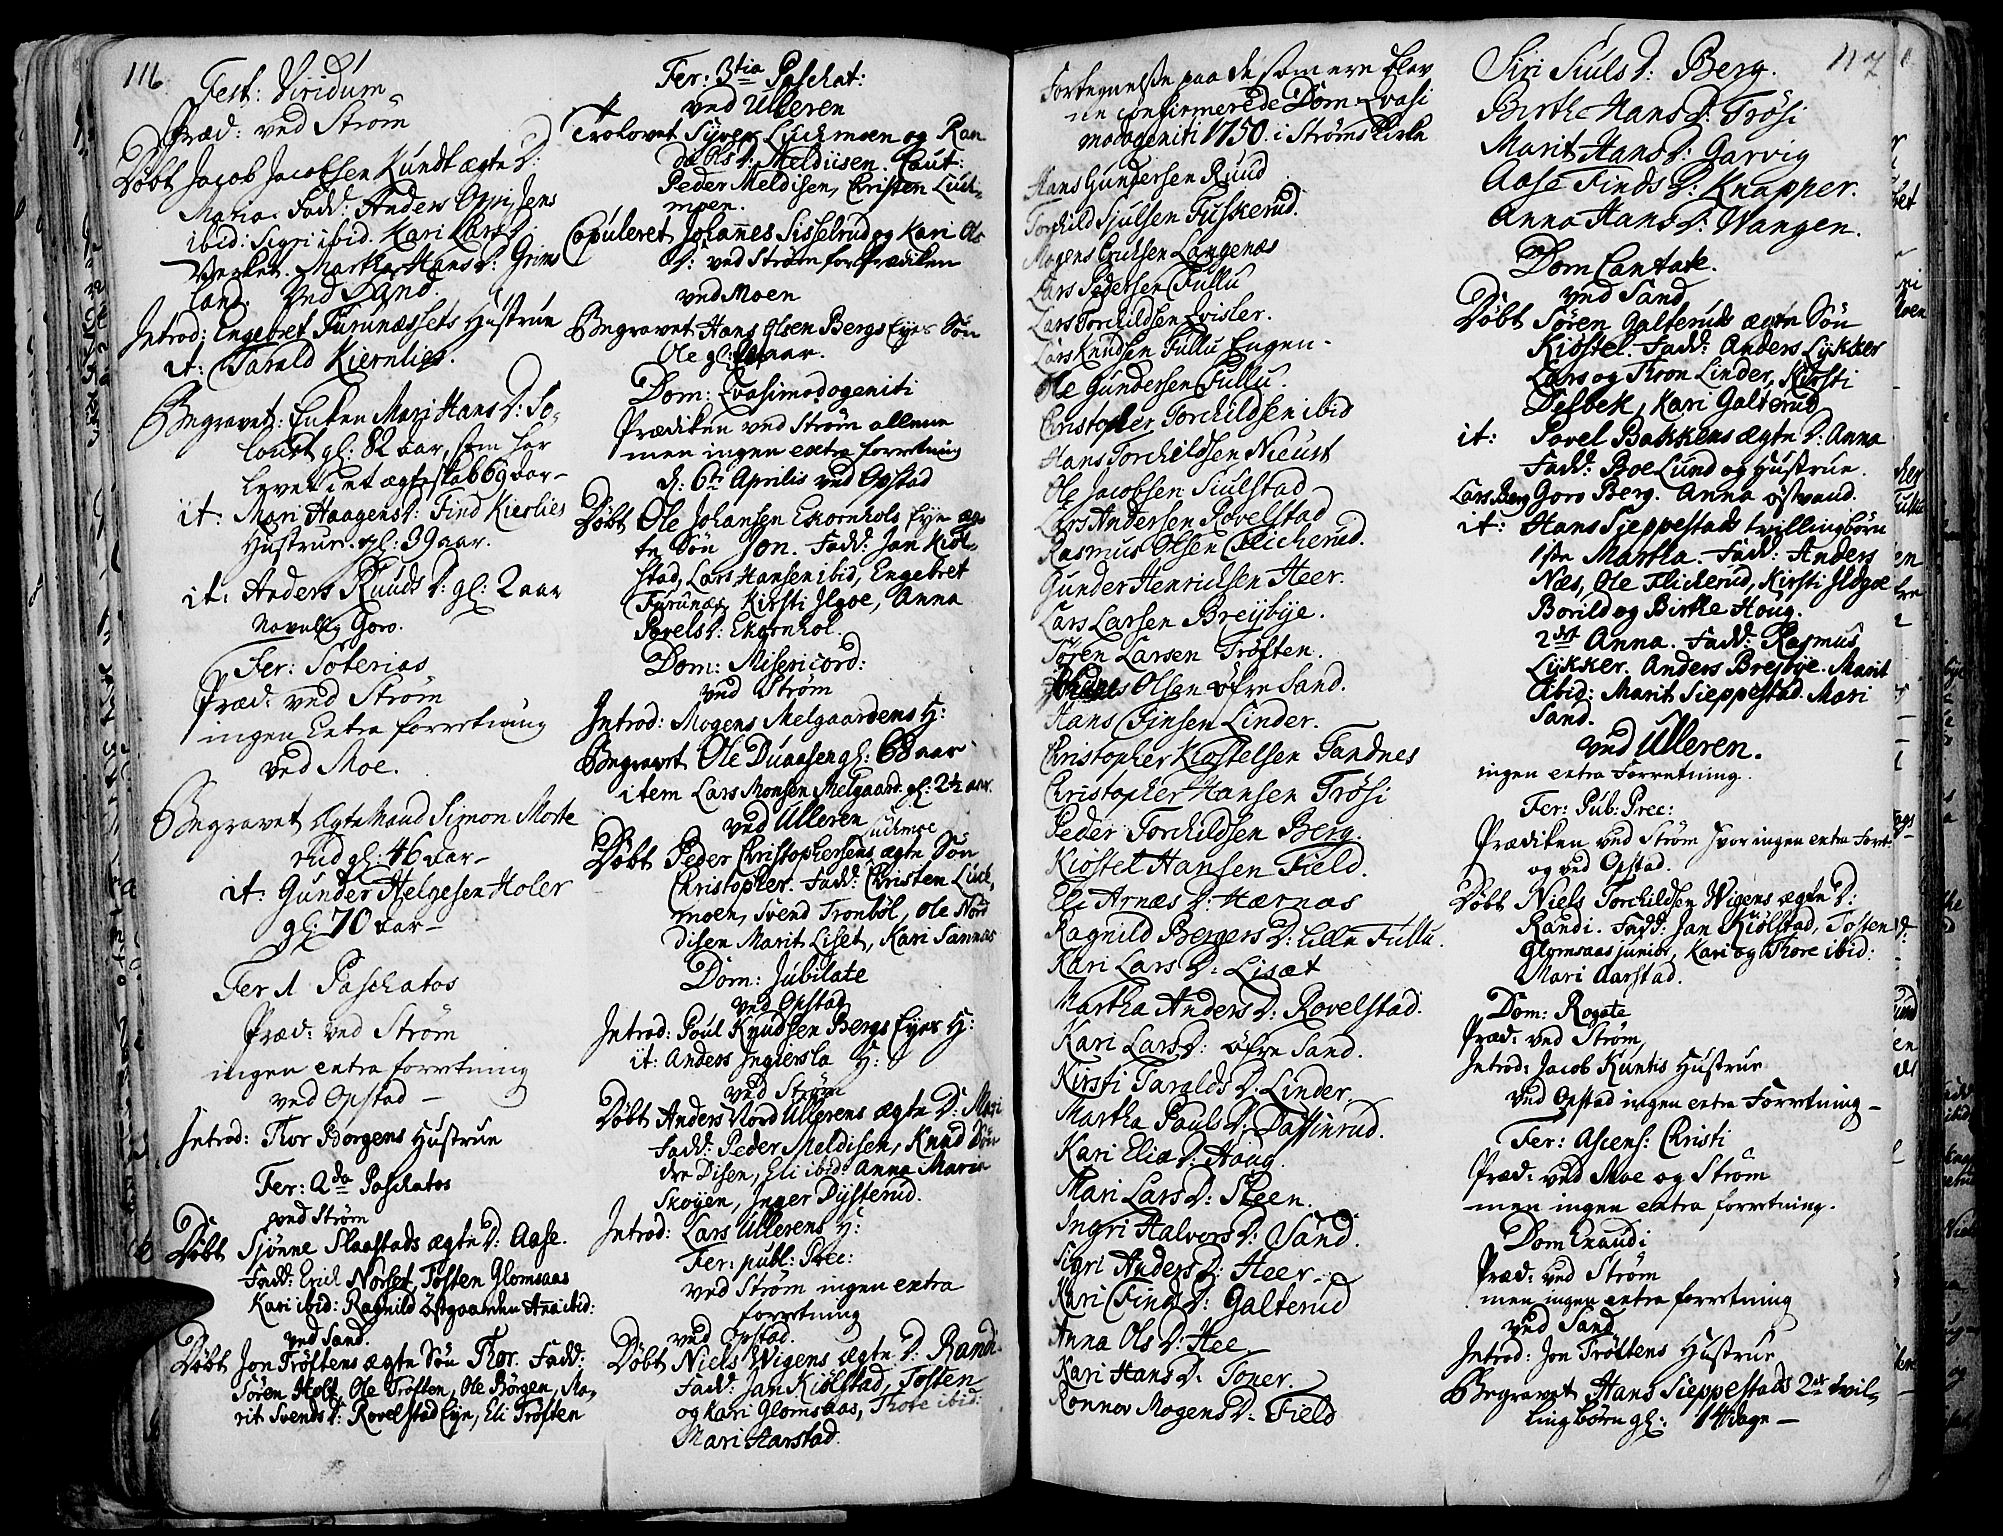 116
Fest: Viridum
Præd: ved Strøm
Døbt Jacob Jacobsen Kundt ægte D:
Maria. Fadd: Anders
ibid: Sigri ibid. Kari Lars D:
Verket. Martha Hans D: Grims
land. ved Sand.
Introd: Engebret Furunæssets Hustrue
it: Tarald Kiernlies.
Begravet: Enken Mari Hans D: So-
gl: 82 aar, som har
levet i et ægteskab 69 aar-
it: Mari Haagens D: Find Kierlies
Hustrue. gl: 39 aar.
it: Anders Ruuds D: gl: 2 aar
Navnlig Goro.
Fer: Soterias
Præd: ved Strøm
ingen Extra forretning
ved Moe.
Begravet Ægte Mand Simon Morte
rud gl: 46 aar-
it: Gunder Helgesen Holer
gl: 70 aar-
Fer 1 Paschatos
Præd: ved Strøm
ingen extra forretning
ved Opstad -
Introd: Thor Borgens Hustrue
Fer: 2da Paschatos
ved Strøm
Døbt Sjønne Slaastads ægte D: Aase.
Fadd: Erich Norset, Tosten Glomsaas
Kari ibid: Ragnild Østgaarden Ana ibid:
ved Sand.
Døbt Jon Trøftens ægte Søn Thor. Fadd:
Søren Holt, Ole Trøften, Ole Børgen, Ma-
rit Svends D: Rovelstad Eye, Eli Trøften
Fer: 3tia Paschat:
ved Ulleren
Trolovet Syver Luchmoen og Ran
D: Meldiisen. Caut:
Peder Meldisen, Christen Luch-
moen.
Copuleret Johanes Sisselrud og Kari Ols
D: ved Strøm for Prædiken
ved Moen
Begravet Hans Olsen Bergs Eyes Søn
Ole gl: aar.
Dom: Qvasimodogeniti
Prædiken ved Strøm allene
men ingen extra forretning
d: 6te Aprilis ved Opstad
Døbt Ole Johansen Ekornhols Eye æg-
te Søn Jon. Fadd: Jan Kiøl-
stad, Lars Hansen ibid, Engebret
Furunæs, Kirsti Ilgoe, Anna
Povels D: Ekornhol.
Dom: Misericord:
ved Strøm
Introd: Mogens Melgaardens H:
Begravet Ole Duaasen gl: 68 aar
item Lars Monsen Melgaard. gl: 2½ aar.
ved Ulleren
Luchmoe
Døbt Peder Christophersens ægte Søn
Christopher. Fadd: Christen Luch,
moen, Svend Tronbøl, Ole Nord
disen Marit Liset, Kari Sannæs
Dom: Jubilate
ved Opstad
Introd: Poul Knudsen Bergs Eyes H:
it: Anders Ingiersla H:
ved Strøm
Døbt Anders Nord Ullerens ægte D: Mari
Fadd: Peder Meldisen, Knud Søn
dre Disen, Eli ibid: Anna Maria
Skoyen, Inger Dysterud.
Introd: Lars Ullerens H:
Fer: publ: Prec:
ved Strøm ingen extra
forretning
ved Opstad.
Døbt Niels Wigens ægte D: Randi
Fadd: Jan Kiølstad, Tosten
og Kari Glomsaas, Thore ibid:
Mari Aarstad.
Fortegnelse paa de som ere blev
ne Confirmerede Dom: Qvasi
modogeniti 1750. i Strøms Kirke
Hans Gundersen Ruud
Torchild Sjulsen Fuskerud.
Mogens Poulsen Langenæs
Lars Pedersen Fullu
Lars Torchildsen Qvisler.
Lars Knudsen Fullu Engen-
Ole Gundersen Fullu.
Christopher Torchildsen ibid
Hans Torchildsen Nieust
Ole Jacobsen Siulstad
Lars Andersen Rovelstad
Rasmus Olsen Flicherud.
Gunder Henrichsen Heer.
Lars Larsen Breijbye.
Søren Larsen Trøften.
Olsen øfre Sand.
Hans Finsen Linder.
Christopher Kiøstelsen Sandnes
Christopher Hansen Trøsi
Peder Torchildsen Berg.
Kiøstel Hansen Field.
Eli Arnæs D: Hærnæs
Ragnild Bergers D: Lille Fullu.
Kari Lars D: Lisæt
Martha Anders D: Rovelstad.
Kari Lars D: øfre Sand.
Kirsti Taralds D: Linder.
Martha Pauls D: Dassinrud.
Kari Eliæ D: Houg
Mari Lars D: Steen.
Ingri Halvors D: Sand.
Sigri Anders D: Heer-
Kari Find D: Galterud
Anna Ols D: Hee
Kari Hans D: Toner
Ronnov Mogens D: Field
117
Siri Siuls D: Berg.
Birthe Hans D: Trøsi
Marit Hans D: Garvig
Aase Finds D: Knapper.
Anna Hans D: Wangen.
Dom Cantate.
ved Sand
Døbt Søren Galteruds ægte Søn
Kiøstel. Fadd: Anders Lykker
Lars og Thron Linder, Kirsti
Disbek, Kari Galterud
it: Povel Bakkens ægte D: Anna
Fadd: Boe Lund og Hustrue.
Lars Berg Goro Berg. Anna Østvand.
it: Hans Sieppestads tvillingbørn
1ste Martha. Fadd: Anders
Næs, Ole Flicherud, Kirsti Ildgoe
Borild og Birthe Houg.
2det Anna. Fadd: Rasmus
Lykker. Anders Breibye. Marit
ibid: Marit Sieppestad. Mari
Sand.
ved Ulleren.
ingen extra Forretning.
Fer: Pub: Prec:
Prædiken ved Strøm hvor ingen extra Forret:
og ved Opstad.
Døbt Niels Torchildsen Wigens ægte D:
Randi. Fadd: Jan Kiølstad, Tosten
Glomsaas junior, Kari og Thore ibid:
Mari Aarstad.
Dom: Rogate
Præd: ved Strøm,
Introd: Jacob Kuntis Hustrue
ved Opstad ingen extra Forretning-
Fer: Ascens: Christi
Præd: ved Moe og Strøm
men ingen extra forretning.
Dom Exaudi
Præd: ved Strøm
men ingen extra forretning
ved Sand
Introd: Jon Trøftens Hustrue
Begravet Hans Sieppestads 2de tvil-
lingbørn gl: 14 dage-